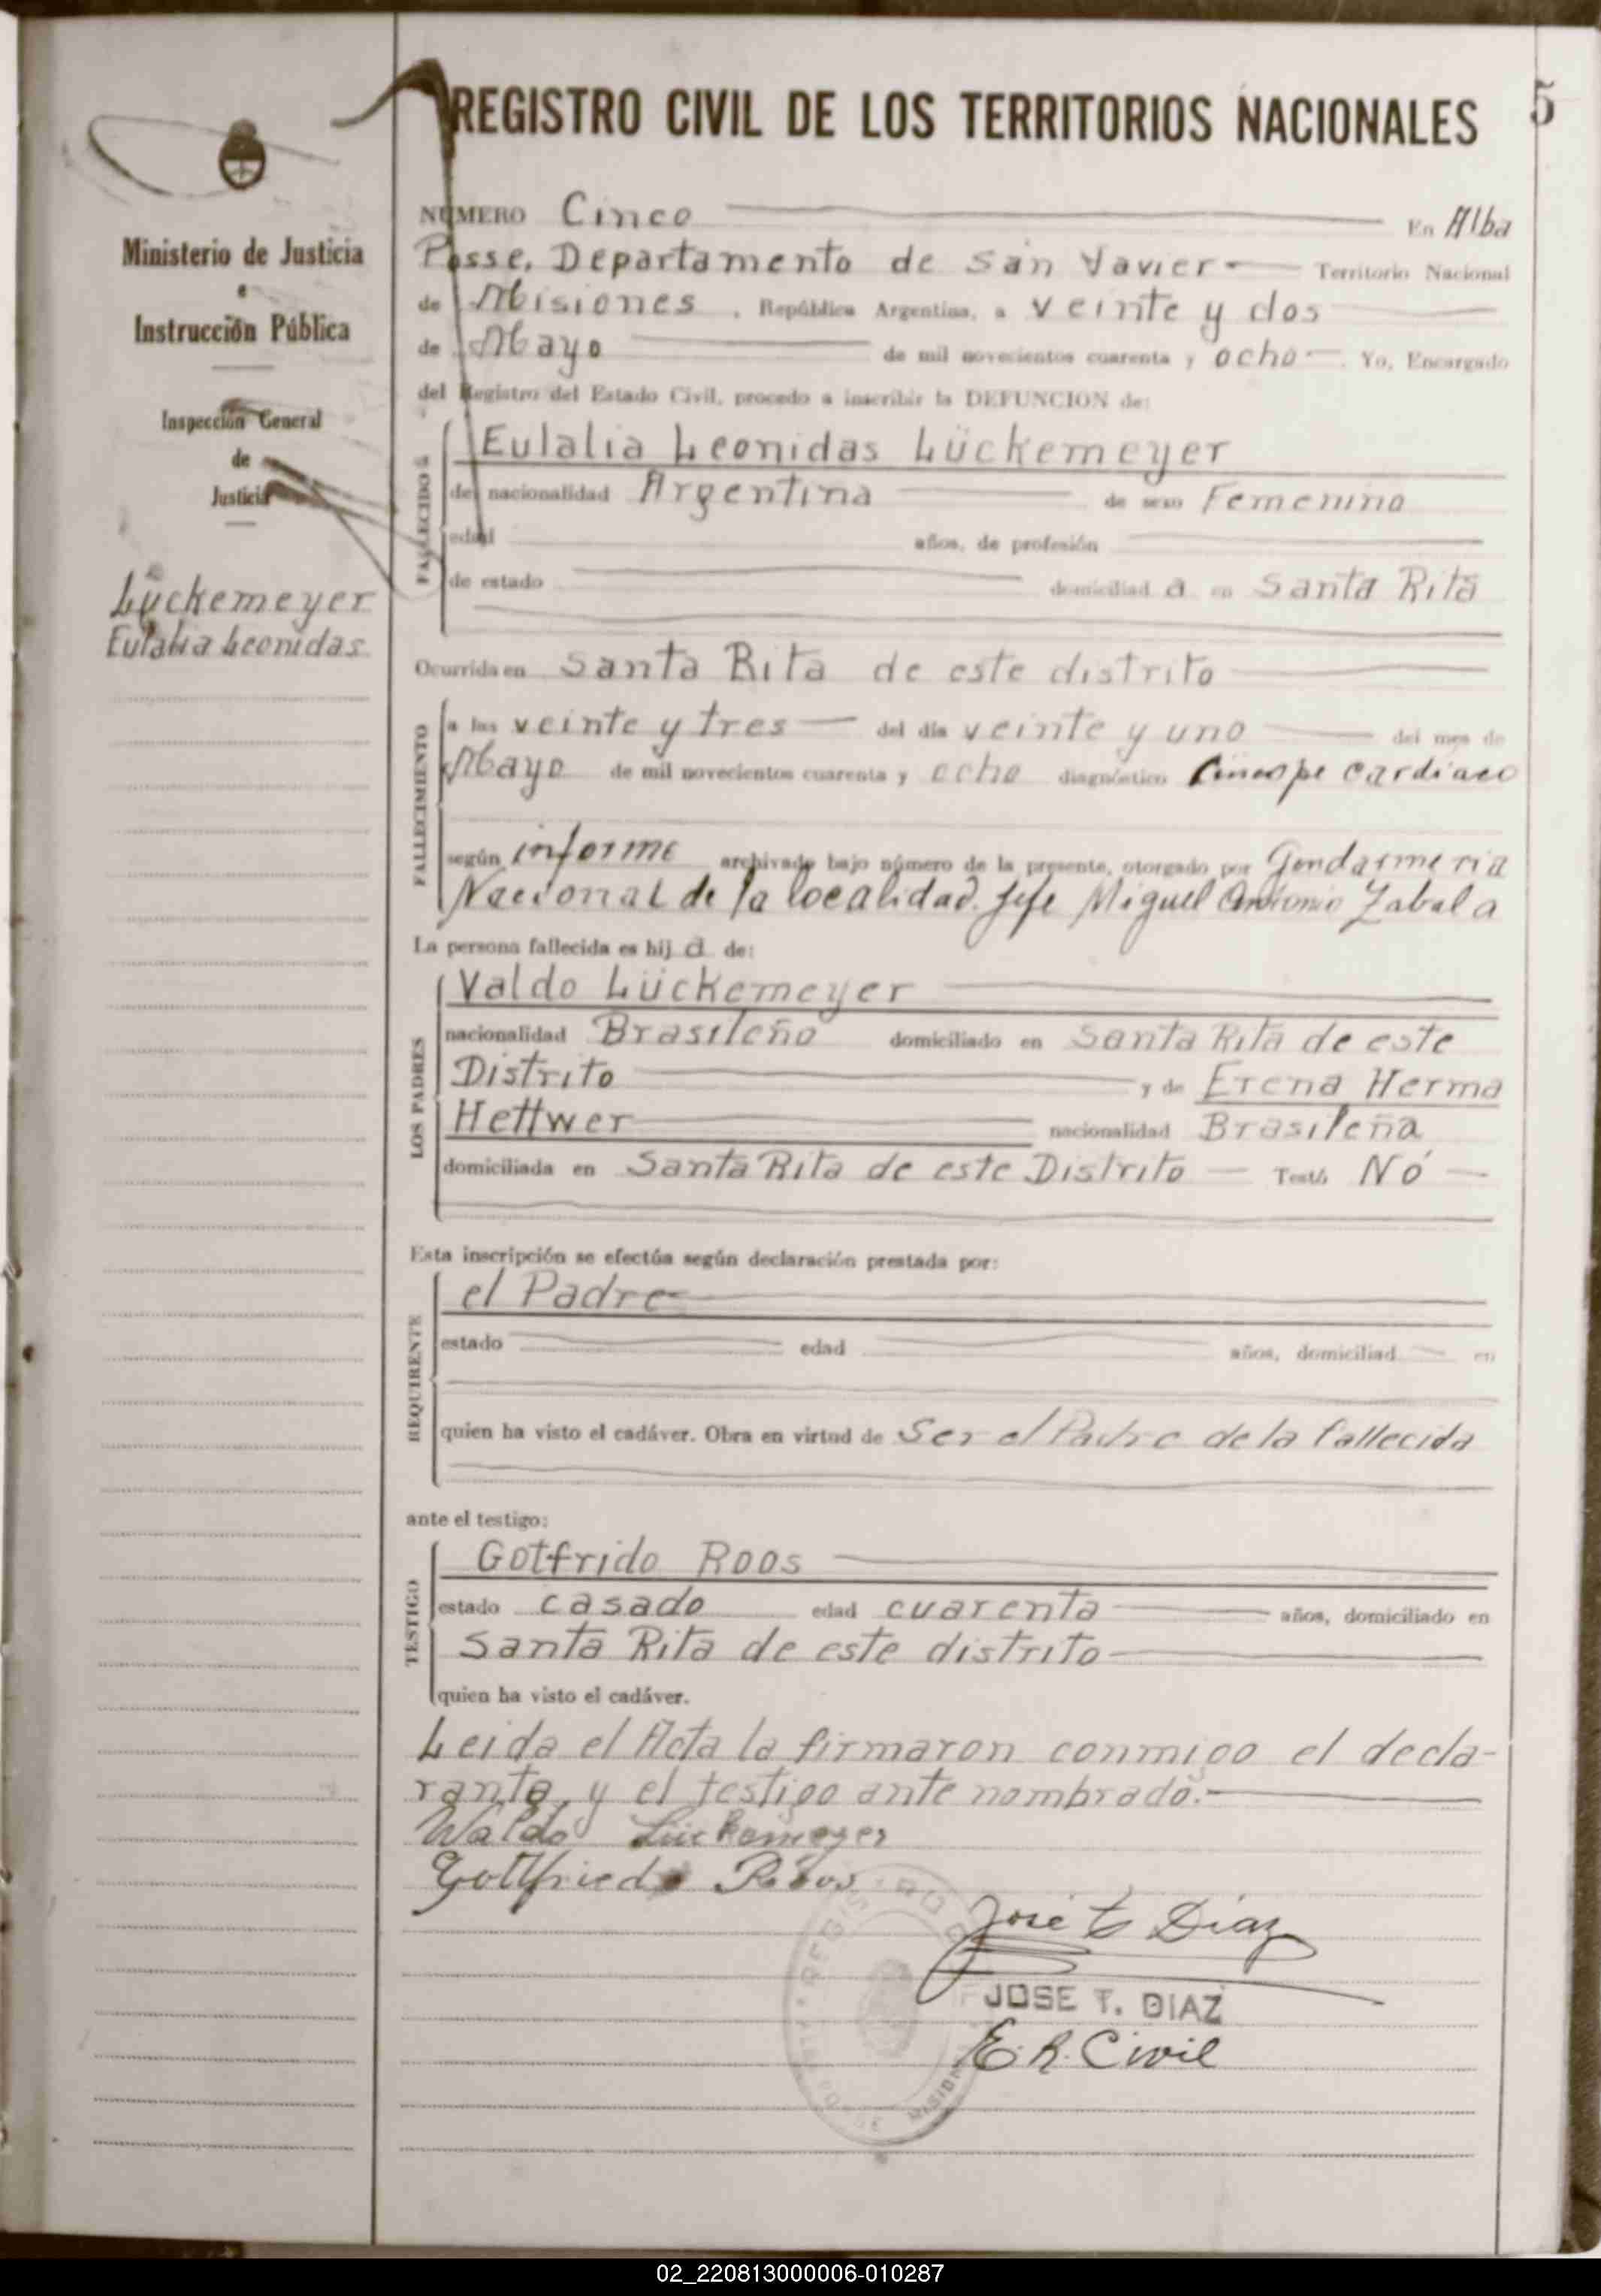 5
REGISTRO CIVIL DE LOS TERRITORIOS NACIONALES
Ministerio de Justicia
e
Instrucción Pública
Inspección General
de
Justicia
Lückemeyer
Eulalia Leonidas
NÚMERO Cinco En Alba
Posse, Departamento de San Javier Territorio Nacional
de Misiones, República Argentina, a veinte y dos
de Mayo de mil novecientos cuarenta y ocho. Yo, Encargado
del Registro del Estado Civil, procedo a inscribir la DEFUNCION de:
FALLECIDO
Eulalia Leonidas Lückemeyer
de nacionalidad Argentina de sexo Femenino
edad años, de profesión
de estado domiciliad a en Santa Rita
Ocurrida en Santa Rita de este distrito
FALLECIMIENTO
a las veinte y tres del día veinte y uno del mes de
Mayo de mil novecientos cuarenta y ocho diagnóstico cardiaco
según informe archivado bajo número de la presente, otorgado por Gendarmeria
Nacional de la localidad. Jefe Miguel Antonio Zabala
La persona fallecida es hij a de:
LOS PADRES
Valdo Lückemeyer
nacionalidad Brasileño domiciliado en Santa Rita de este
Distrito y de Erena Herma
Hettwer nacionalidad Brasileña
domiciliada en Santa Rita de este Distrito Testó Nó
Esta inscripción se efectúa según declaración prestada por:
REQUIRENTE
el Padre
estado edad años, domiciliad en
quien ha visto el cadáver. Obra en virtud de Ser el Padre de la fallecida
ante el testigo:
TESTIGO
Gotfrido Roos
estado casado edad cuarenta años, domiciliado en
Santa Rita de este distrito
quien ha visto el cadáver.
Leida el Acta la firmaron conmigo el decla-
rante, y el testigo ante nombrado.-
Waldo Lückemeyer
Gottfriedo Roos
José T Diaz
JOSE T. DIAZ
E. R. Civil
02_220813000006-010287